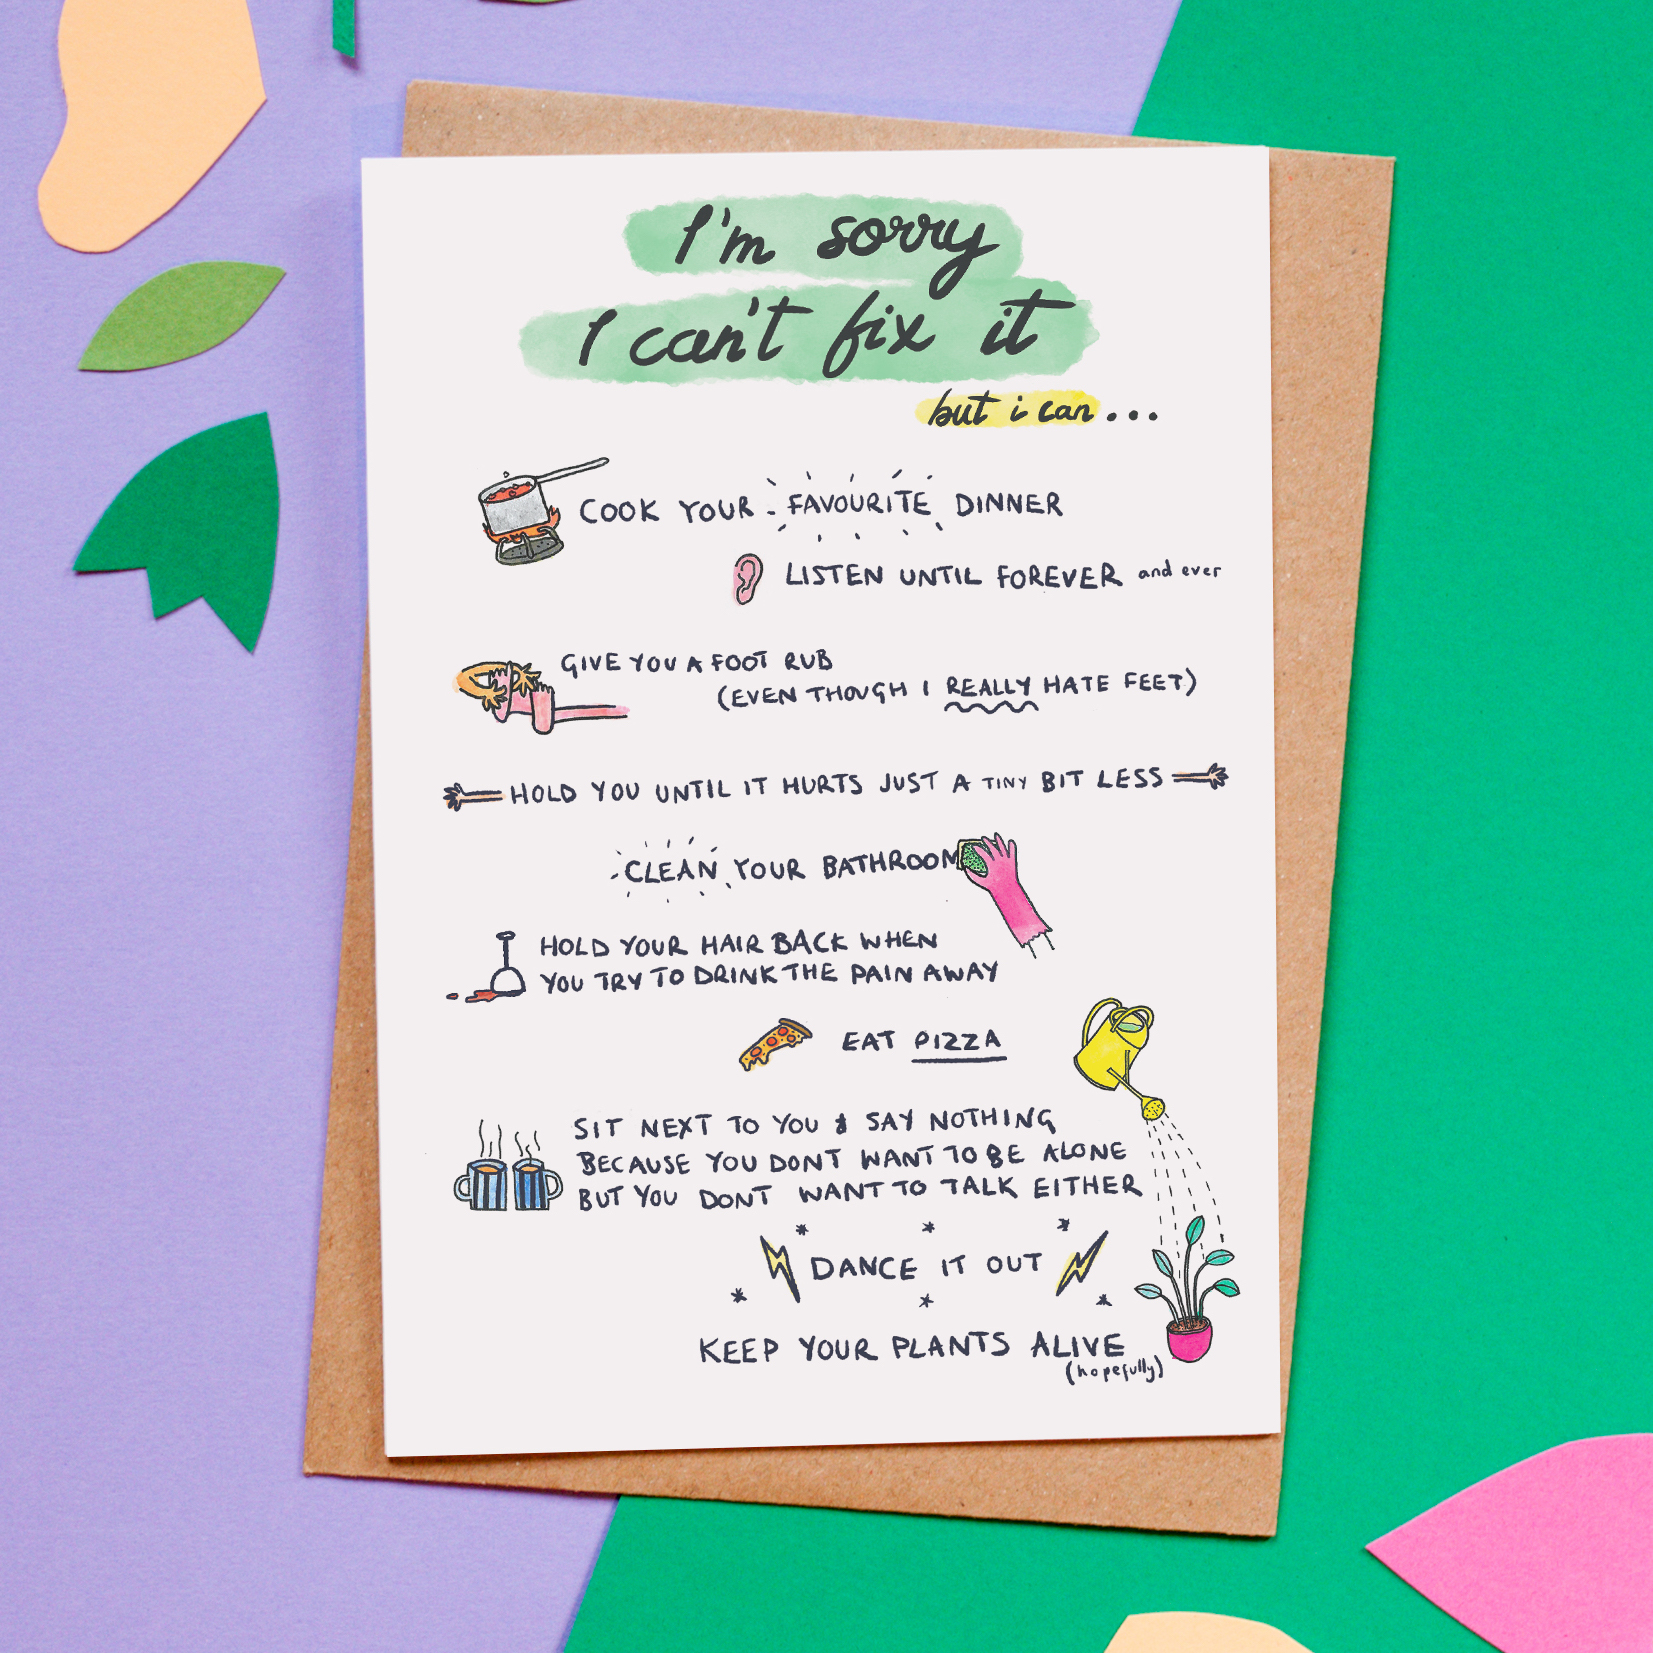 I'm sorry
I can't fix it
but i can...
COOK YOUR FAVOURITE DINNER
LISTEN UNTIL FOREVER and ever
GIVE YOU A FOOT RUB
(EVEN THOUGH I REALLY HATE FEET)
HOLD YOU UNTIL IT HURTS JUST A TINY BIT LESS
CLEAN YOUR BATHROOM
HOLD YOUR HAIR BACK WHEN
YOU TRY TO DRINK THE PAIN AWAY
EAT PIZZA
SIT NEXT TO YOU & SAY NOTHING
BECAUSE YOU DONT WANT TO BE ALONE
BUT YOU DONT WANT TO TALK EITHER
DANCE IT OUT
KEEP YOUR PLANTS ALIVE
(hopefully)